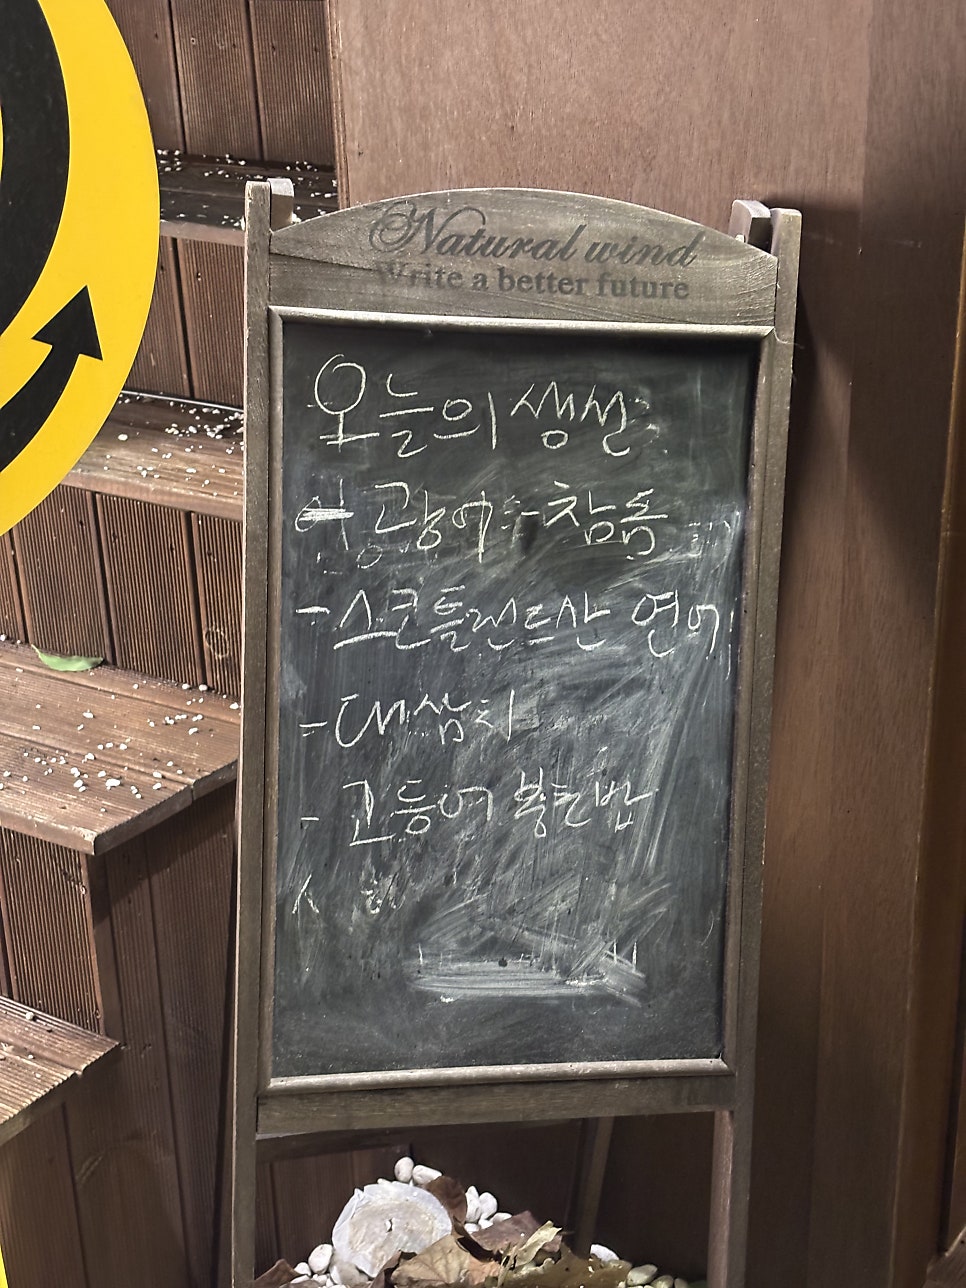 Natural wind
Write a better future
오늘의 생선
광어 참돔
- 스코틀랜드산 연어
- 대삼치
- 고등어 봉초밥